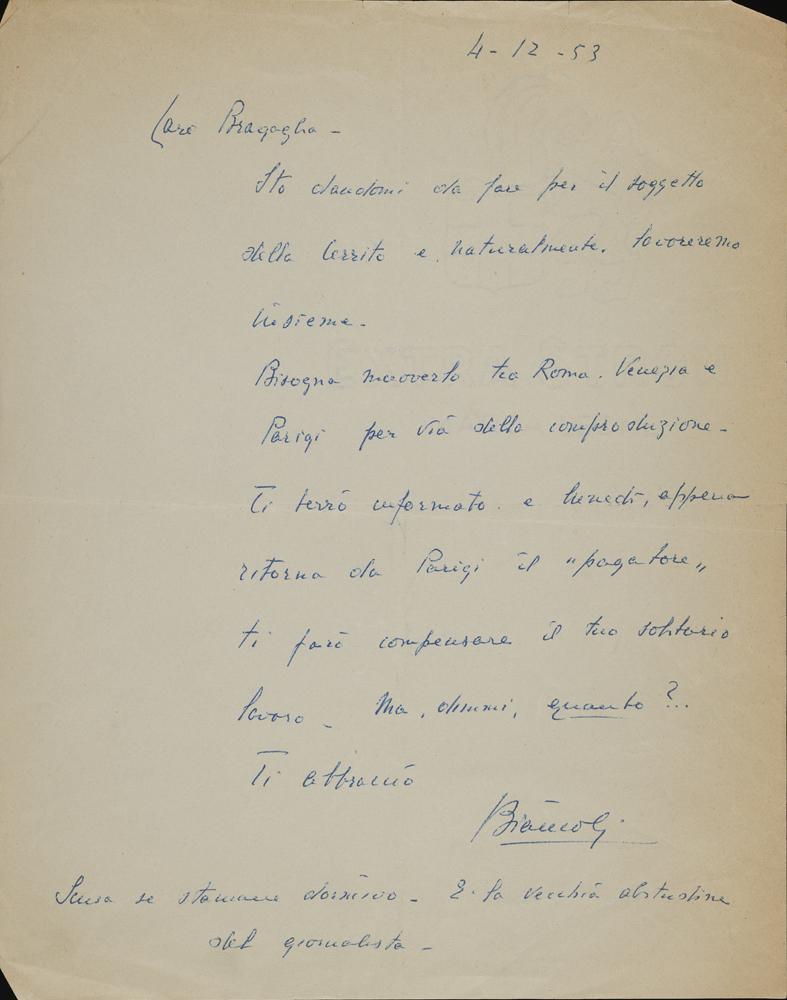 4-12-53
Caro Bragaglia -
Sto dandomi da fare per il soggetto
della Cerrito e, naturalmente, lavoreremo
insieme.
Bisogna muoverlo tra Roma, Venezia e
Parigi per via della comproduzione -
Ti terrò informato e lunedì, appena
ritorna da Parigi il "pagatore"
ti farò compensare il tuo solitario
lavoro - Ma, dimmi, quanto?..
Ti abbraccio
Biancoli
Scusa se stamane dormivo - È la vecchia abitudine
del giornalista -